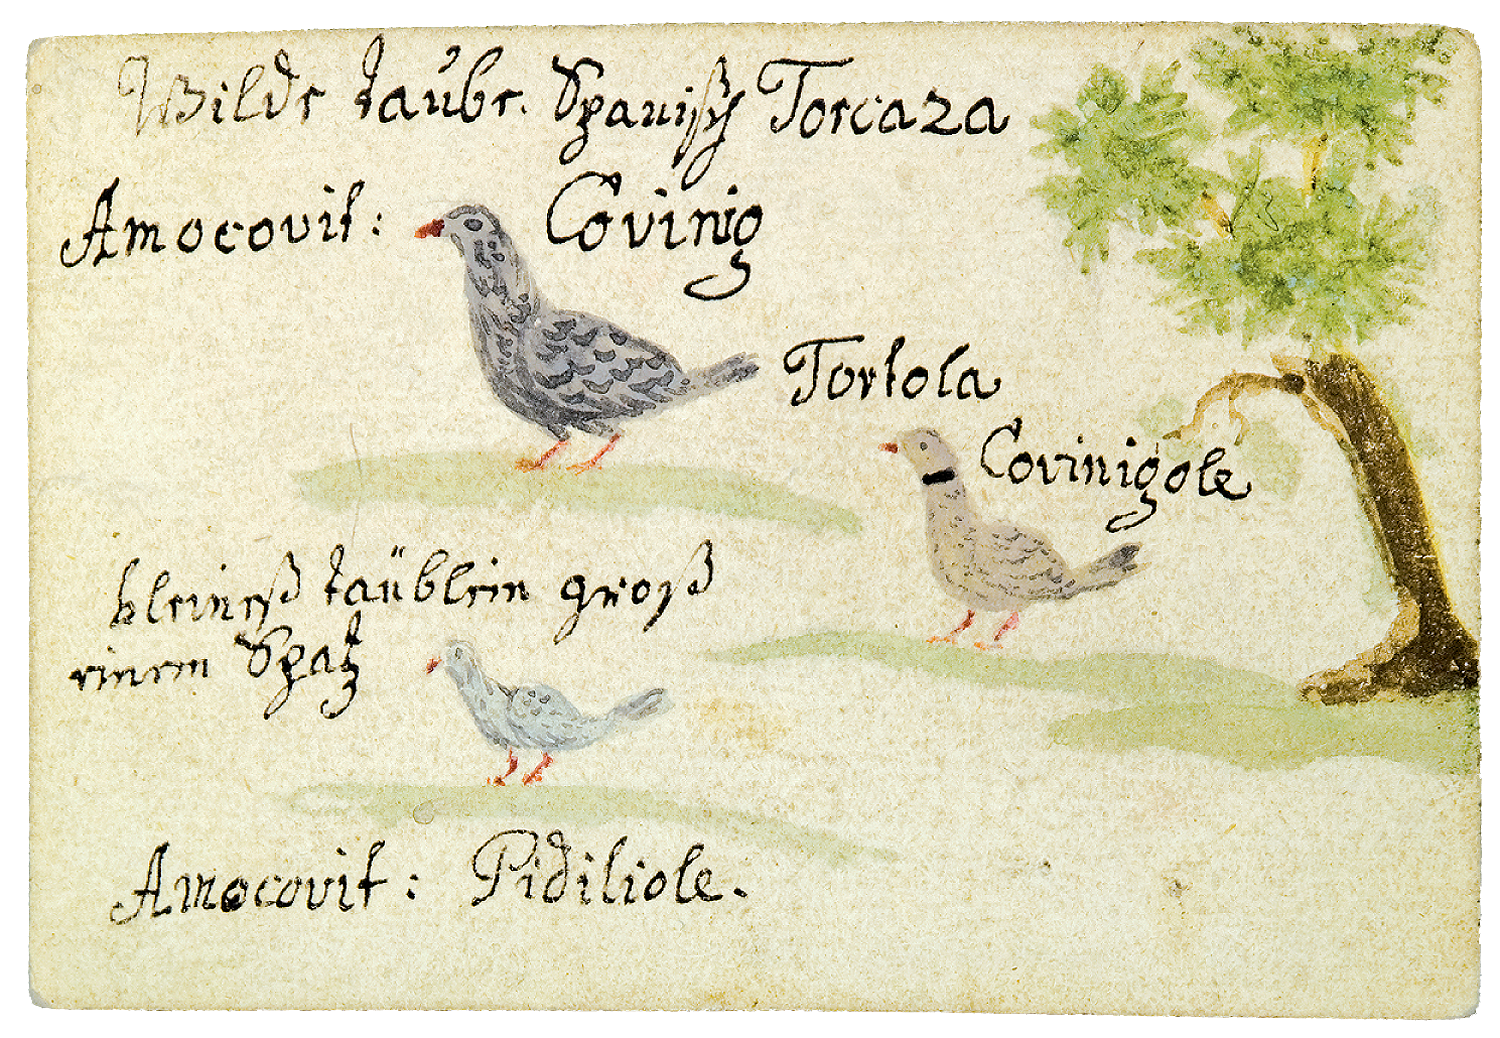 Wilde taube. Spanisch Torcaza
Amocovit: Covinig
Tortola
Covinigole
kleineß taüblein groß
einem Spatz
Amocovit: Pidiliole.